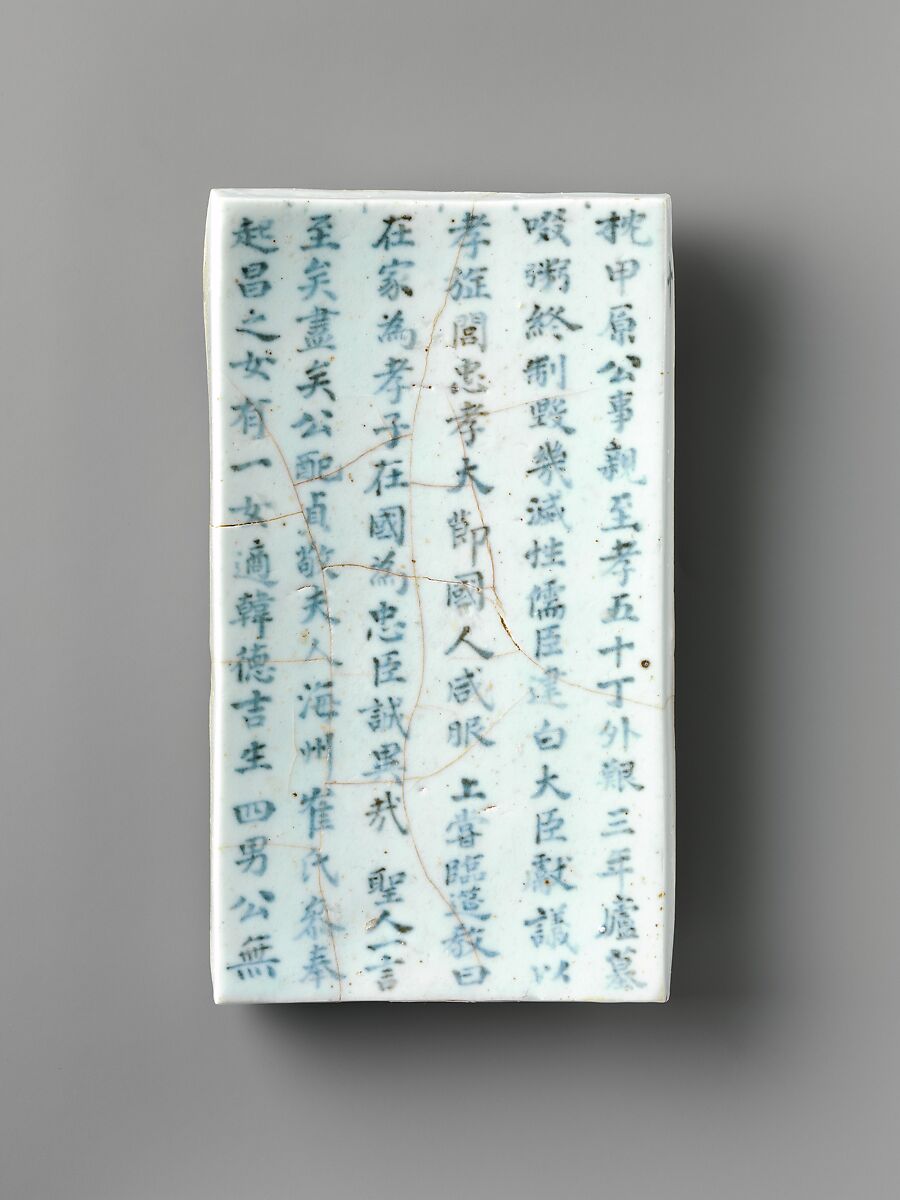 枕甲原公事親至孝五十丁外艱三年廬墓
啜粥終制毀幾滅性儒臣建白大臣獻議以
孝旌閭忠孝大節國人咸服 上嘗臨筵敎曰
在家為孝子在國為忠臣誠異哉 聖人一言
至矣盡矣公配貞敬夫人海州崔氏叅奉
起昌之女有一女適韓德吉生四男公無